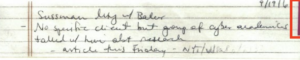 9/19/16
Sussman mtg w/ Baker
- No specific client but group of cyber academics
talked w/ him abt research
- article this Friday - NYT/W